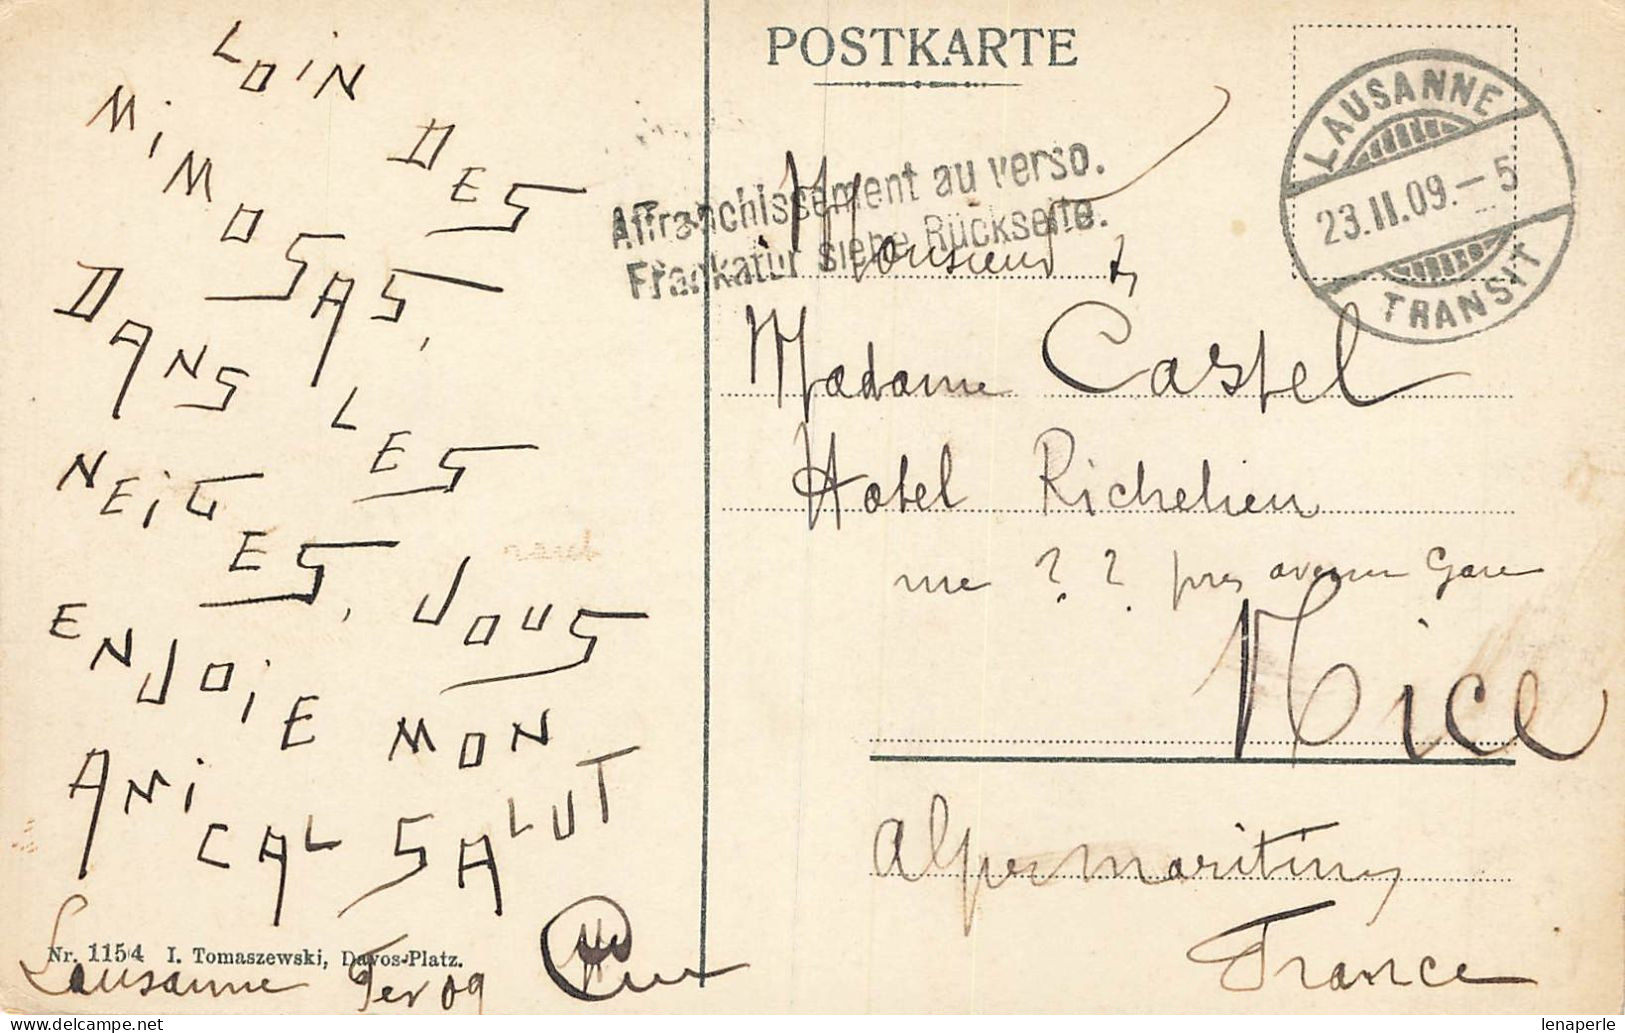 POSTKARTE
LOIN
DES
MIMOSAS,
DANS LES
NEIGES, JOUS
ENJOIE MON
AMICAL SALUT
Lausanne Fev 09
Nr. 1154 I. Tomaszewski, Davos-Platz.
Affranchissement au verso.
Frankatur siehe Rückseite.
LAUSANNE
23.II.09.-5
TRANSIT
Monsieur &
Madame Castel
Hotel Richelieu
rue ? ? pres avenue Gare
Nice
Alpes maritimes
France
lenaperle